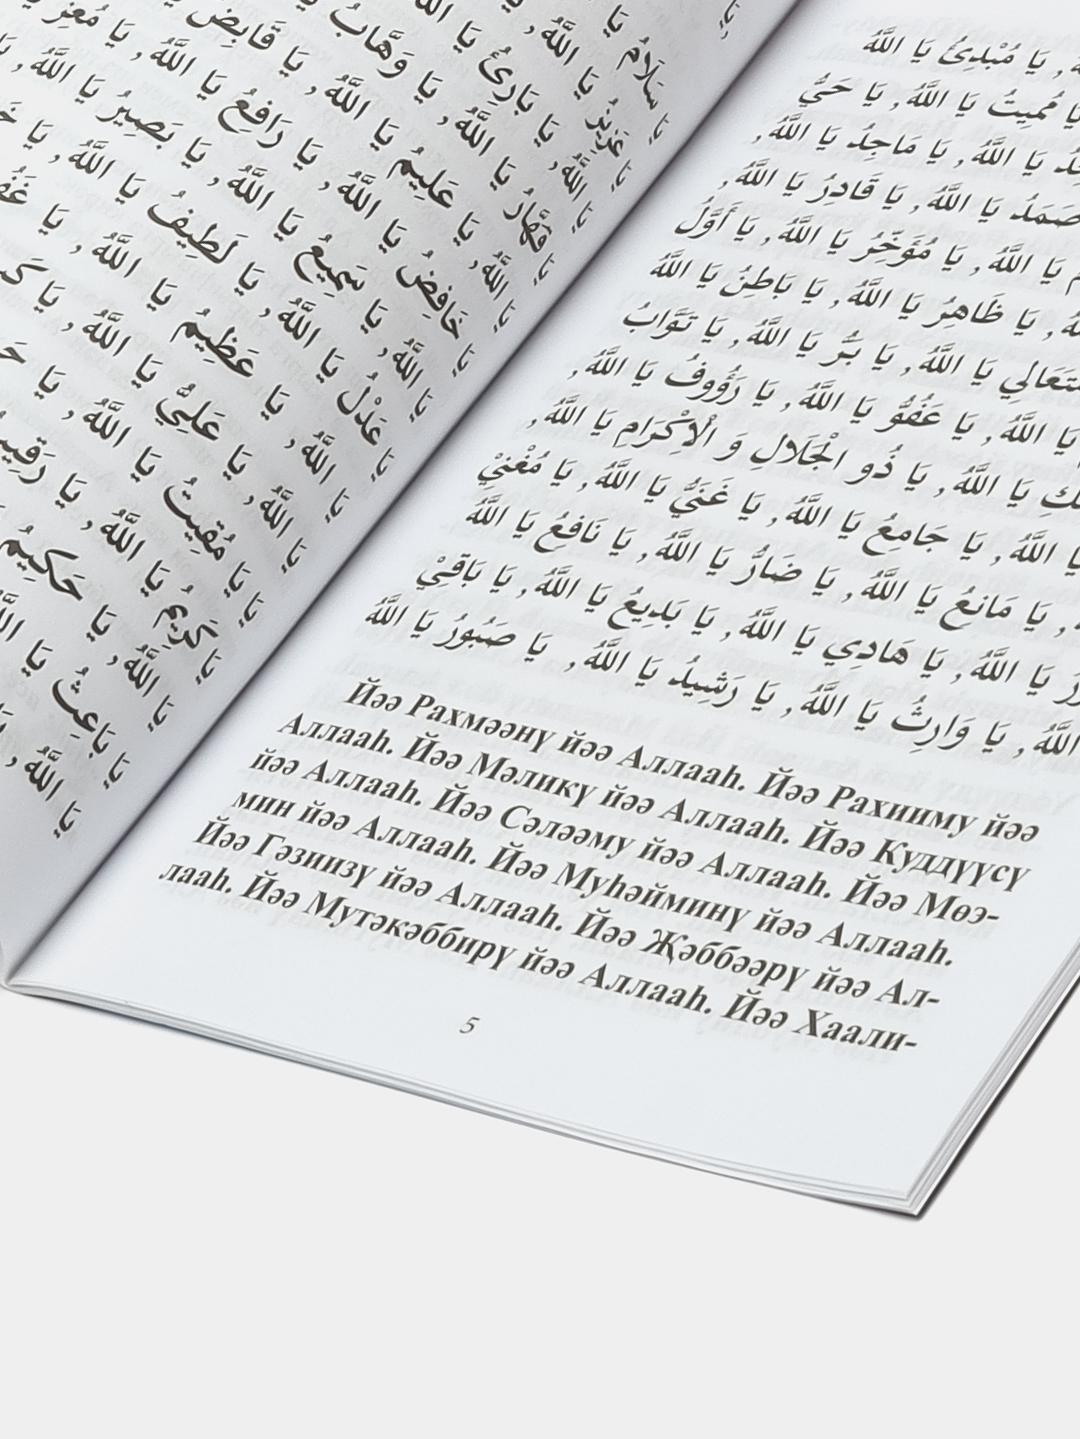 سَلَامُ يَا
عَزِيزُ يَا اللَّهُ,
اللَّهُ, يَا بَارِئُ يَا
قَهَّارُ يَا اللَّهُ, يَا وَهَّابُ
اللَّهُ, يَا عَلِيمُ يَا اللَّهُ, يَا قَابِضُ
خَافِضُ يَا اللَّهُ, يَا رَافِعُ يَا اللَّهُ, يَا مُعِزُّ
اللَّهُ, يَا سَمِيعُ يَا اللَّهُ, يَا بَصِيرُ يَا اللَّهُ,
يَا عَدْلُ يَا اللَّهُ, يَا لَطِيفُ يَا اللَّهُ, يَا
اللَّهُ, يَا عَظِيمُ يَا اللَّهُ, يَا
يَا اللَّهُ, يَا عَلِيُّ يَا اللَّهُ, يَا
يَا مُقِيتُ يَا اللَّهُ,
يَا كَرِيمُ يَا اللَّهُ, يَا رَقِيبُ
يَا اللَّهُ, يَا حَكِيمُ
يَا بَاعِثُ يَا
يَا اللَّهُ,
يَا مُبْدِئُ يَا اللَّهُ
يَا مُمِيتُ يَا اللَّهُ, يَا حَيُّ
يَا اللَّهُ, يَا مَاجِدُ يَا اللَّهُ,
صَمَدُ يَا اللَّهُ, يَا قَادِرُ يَا اللَّهُ,
يَا اللَّهُ, يَا مُؤَخِّرُ يَا اللَّهُ, يَا أَوَّلُ
يَا ظَاهِرُ يَا اللَّهُ, يَا بَاطِنُ يَا اللَّهُ
يَا اللَّهُ, يَا بَرُّ يَا اللَّهُ, يَا تَوَّابُ
يَا اللَّهُ, يَا عَفُوُّ يَا اللَّهُ, يَا رَؤُوفُ يَا اللَّهُ,
يَا اللَّهُ, يَا ذُو الْجَلَالِ وَ الْاِكْرَامِ يَا اللَّهُ,
يَا اللَّهُ, يَا جَامِعُ يَا اللَّهُ, يَا غَنَيُّ يَا اللَّهُ, يَا مُغْنيْ
يَا مَانِعُ يَا اللَّهُ, يَا ضَارُّ يَا اللَّهُ, يَا نَافِعُ يَا اللَّهُ
يَا اللَّهُ, يَا هادِي يَا اللَّهُ, يَا بَدِيعُ يَا اللَّهُ, يَا بَاقِيْ
اللَّهُ, يَا وَارِثُ يَا اللَّهُ, يَا رَشِيدُ يَا اللَّهُ, يَا صَبُورُ يَا اللَّهُ
Йәә Рахмәәнү йәә Аллааһ. Йәә Рахииму йәә
Аллааһ. Йәә Мәликү йәә Аллааһ. Йәә Куддүүсү
йәә Аллааһ. Йәә Сәләәму йәә Аллааһ. Йәә Мөэ-
мин йәә Аллааһ. Йәә Муһәйминү йәә Аллааһ.
Йәә Гәзиизү йәә Аллааһ. Йәә Җәббәәрү йәә Ал-
лааһ. Йәә Мутәкәббирү йәә Аллааһ. Йәә Хаали-
5